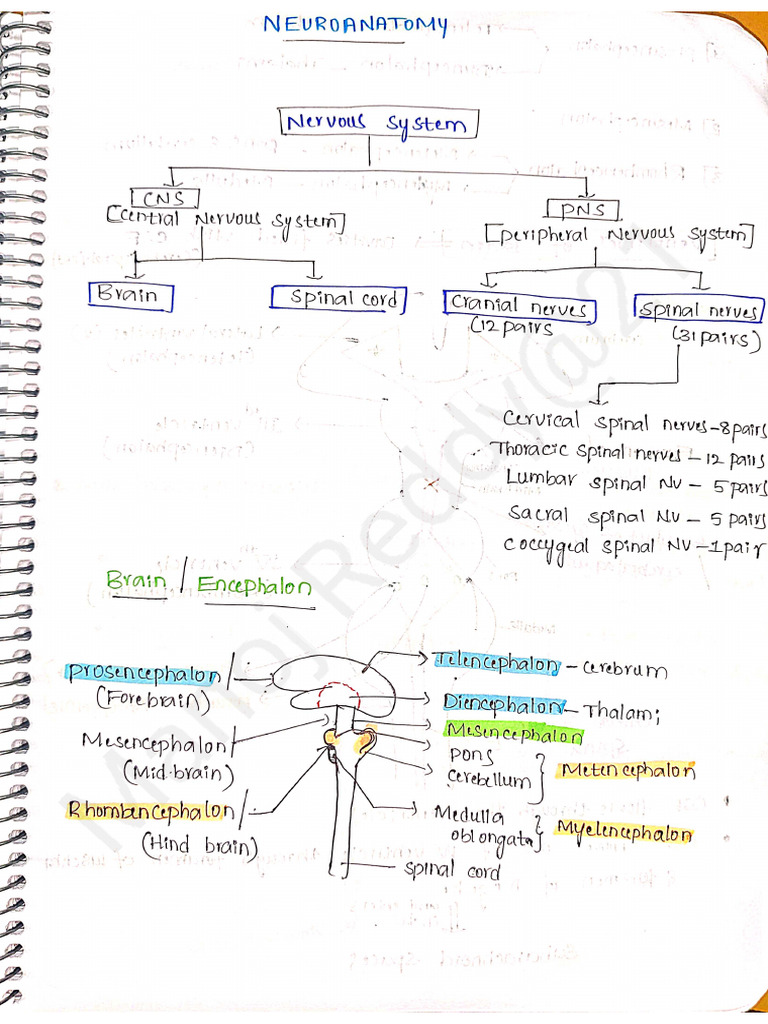 NEUROANATOMY
Nervous system
CNS
[Central Nervous system]
PNS
[peripheral Nervous system]
Brain
Spinal cord
Cranial nerves
(12 pairs
Spinal nerves
(31 pairs)
Cervical spinal nerves - 8 pairs
Thoracic spinal nerves - 12 pairs
Lumbar spinal NV - 5 pairs
Sacral spinal NV - 5 pairs
Coccygeal spinal NV - 1 pair
Brain / Encephalon
Prosencephalon
(Forebrain)
Mesencephalon
(Mid-brain)
Rhombencephalon
(Hind brain)
Telencephalon - cerebrum
Diencephalon - Thalami;
Mesencephalon
pons
cerebellum } Metencephalon
Medulla
oblongata } Myelencephalon
spinal cord
Manoj Reddy@21